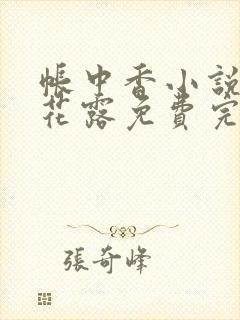 帳中香小說
花露免費完
張奇峰